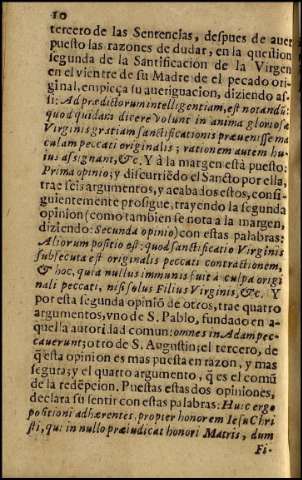 10
tercero de las Sentencias, despues de auer
puesto las razones de dudar, en la question
segunda de la Santificacion de la Virgen
en el vientre de su Madre de el pecado ori-
ginal, empieça su aueriguacion, diziendo as-
si: Ad prædictorum intelligentiam, est notandũ:
quod quidam dicere volunt in anima gloriosæ
Virginis gratiam sanctificationis præuenisse ma
culam peccati originalis; rationem autem hu-
ius assignant, &c. Y à la margen està puesto:
Prima opinio; y discurriẽdo el Sancto por ella,
trae seis argumentos, y acabados estos, consi-
guientemente prosigue, trayendo la segunda
opinion (como tambien se nota a la margen,
diziendo: Secunda opinio) con estas palabras:
Aliorum positio est: quod sanctificatio Virginis
subsecuta est originalis peccati contractionem,
& hoc, quia nullus immunis fuit à culpa origi
nali peccati, nisi solus Filius Virginis, &c. Y
por esta segunda opiniõ de otros, trae quatro
argumentos, vno de S. Pablo, fundado en a-
quella autoridad comun: omnes in Adam pec-
cauerunt; otro de S. Augustin; el tercero, de
q̃ esta opinion es mas puesta en razon, y mas
segura; y el quarto argumento, q̃ es el comũ
de la redẽpcion. Puestas estas dos opiniones,
declara su sentir con estas palabras: Huic ergo
positioni adhærentes, propter honorem Iesu Chri
sti, qui in nullo præiudicat honori Matris, dum
Fi-